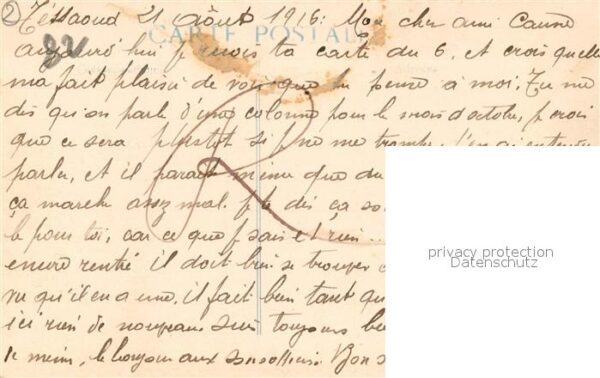 ② Tessaoud 21 août 1916: Mon cher ami Causse
CARTE POSTALE
22
aujourd'hui je reçois ta carte du 6, et crois quelle
ma fait plaisir de voir que tu pense a moi. Tu me
dis qu'on parle d'une colonne pour le mois d'octobre, je crois
que ce sera plustot si je ne me trompe, j'en ai entendu
parler, et il parait même que du
ça marche assez mal. je te dis ça
le pour toi, car ce que je sais et rien ...
encore rentré il doit bien se trouver
vu qu'il en a une. il fait bien tant que
ici rien de nouveau suis toujours
le meme, le bonjour aux Bon
privacy protection
Datenschutz